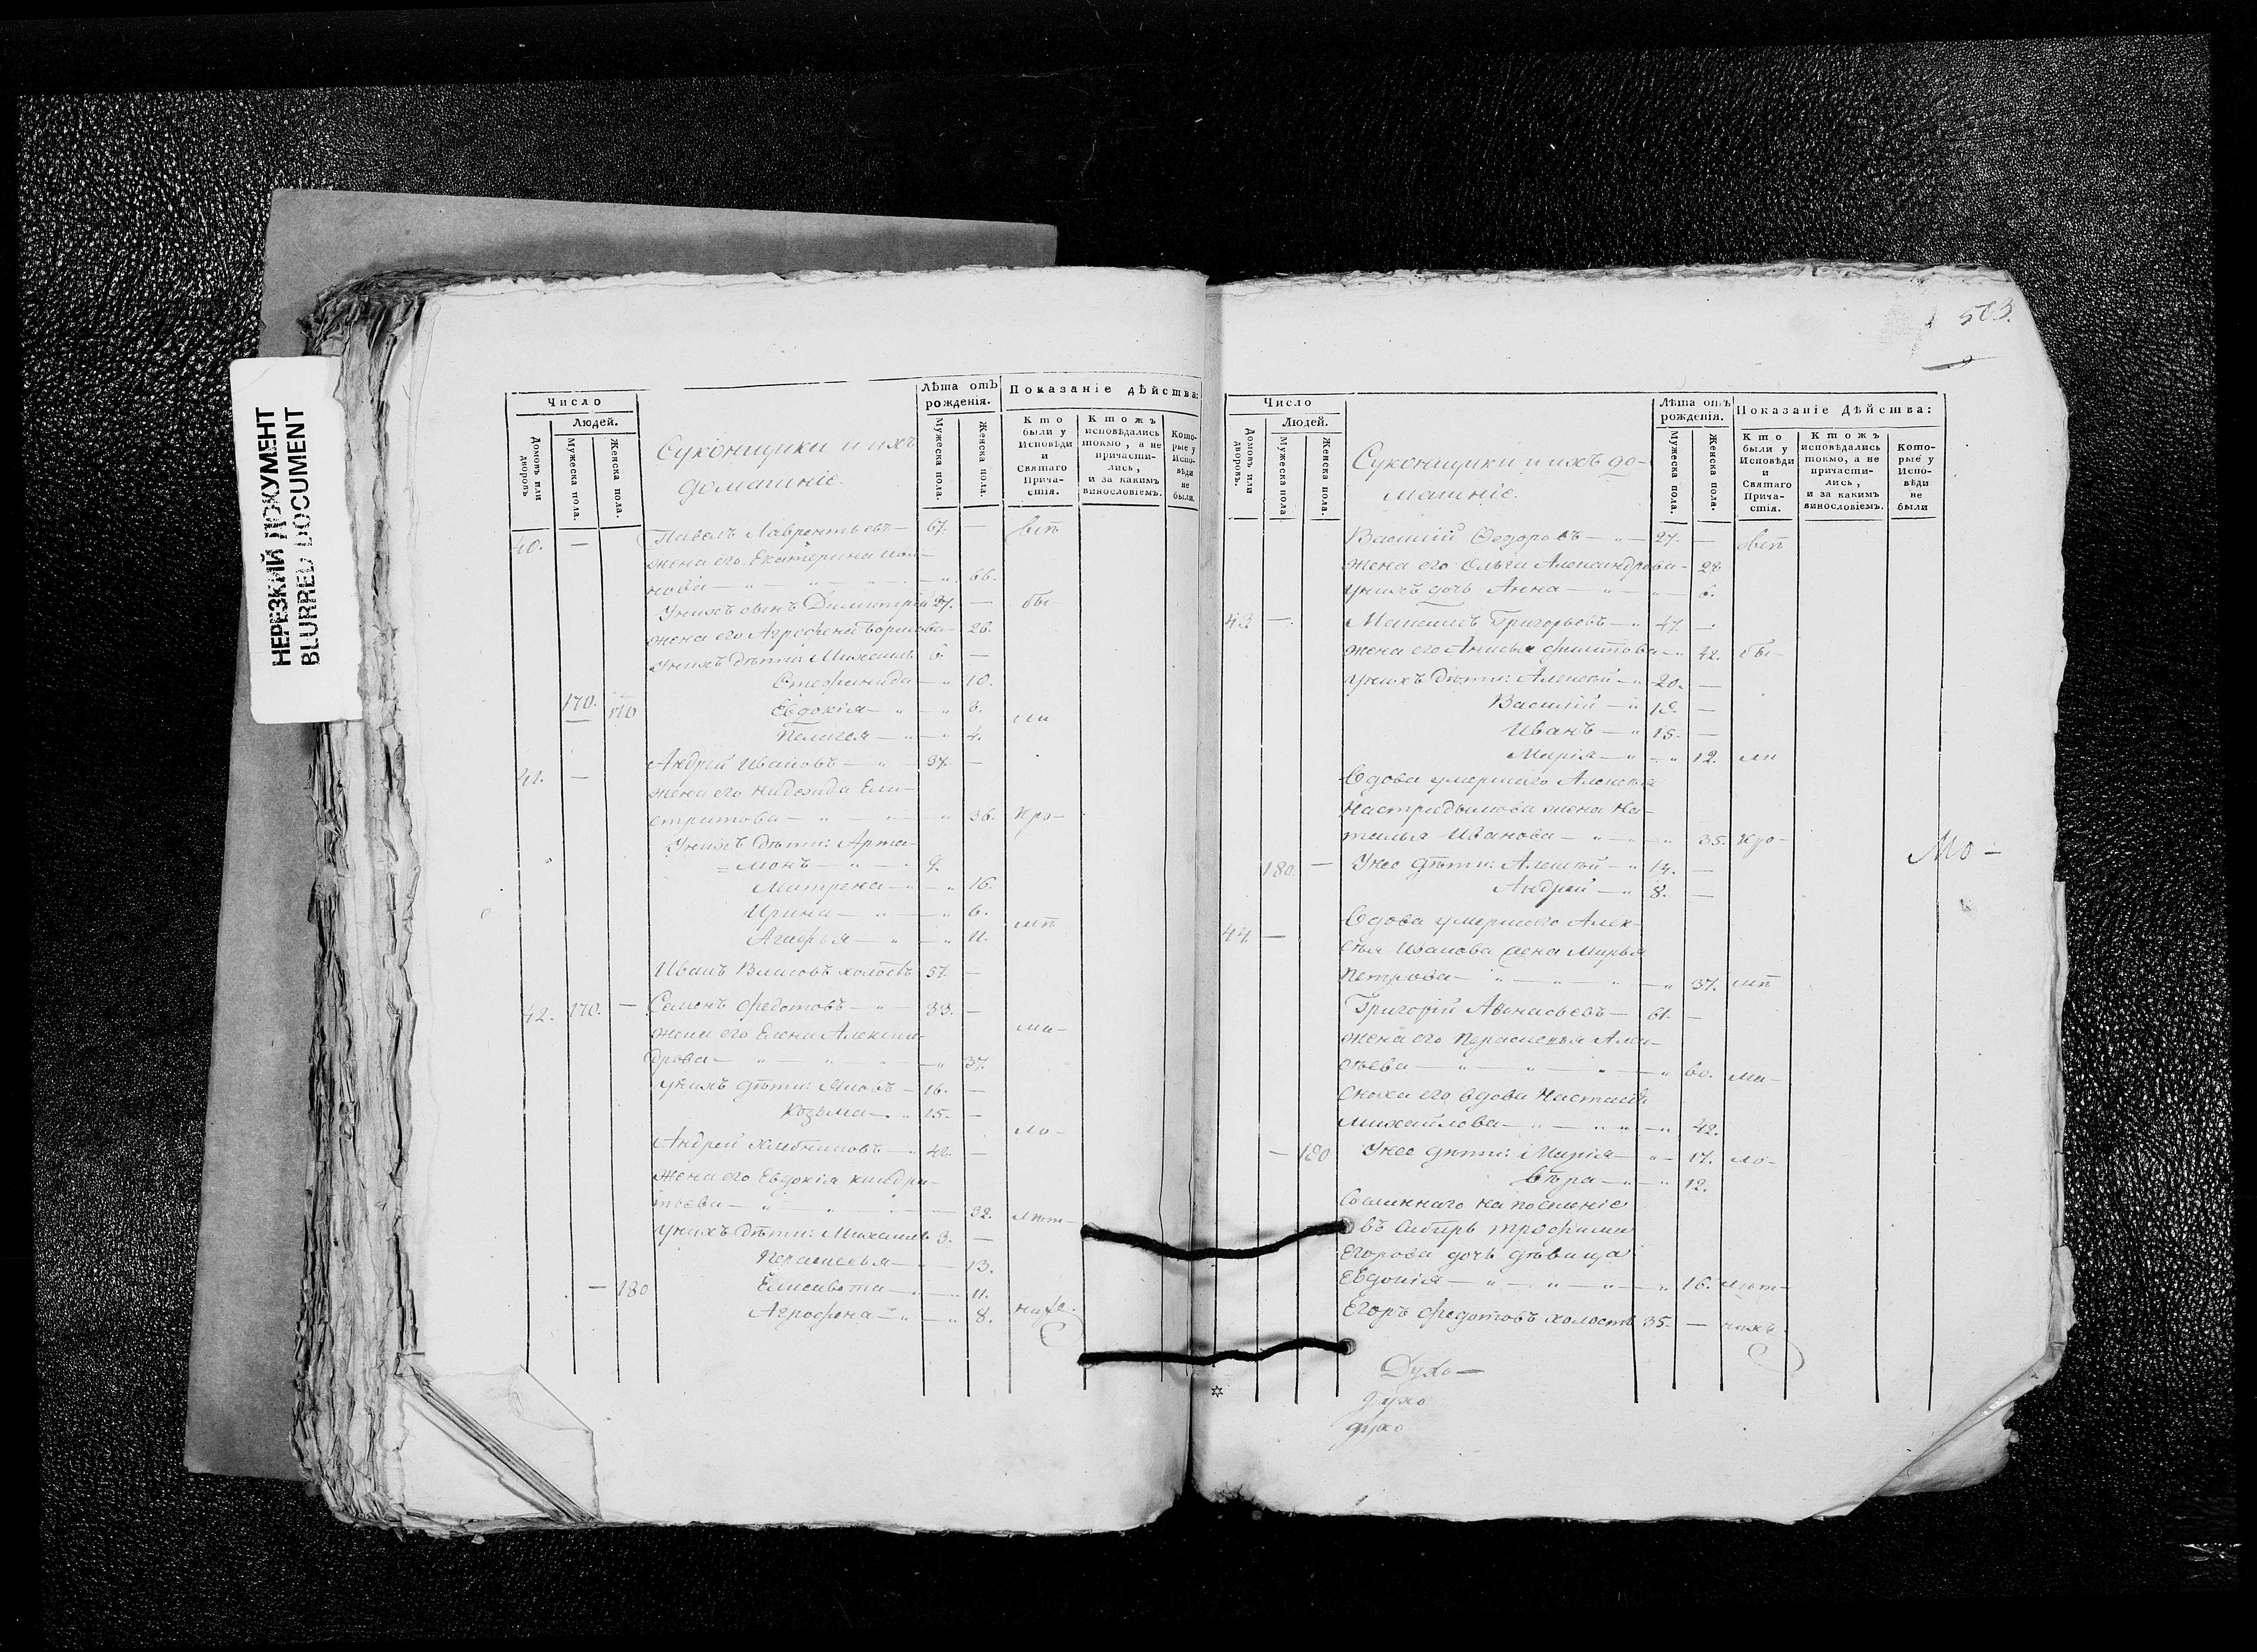 НЕРЕЗКИЙ ДОКУМЕНТ
BLURRED DOCUMENT
Число
Людей.
Домовъ или дворовъ
Мужеска пола.
Женска пола.
Суконщики и ихъ
домашніе.
Лѣта отъ рожденія.
Мужеска пола.
Женска пола.
Показаніе дѣйства:
Кто были у Исповѣди и Святаго Причастія.
Ктожъ исповѣдались токмо, а не причастились, и за какимъ винословіемъ.
Которые у Исповѣди не были.
40. — Павелъ Лаврентьевъ — 67. —
жена его Екатерина
нова — 66.
У нихъ сынъ Димитрій 37. — бы
жена его Агрофена Борисова — 26.
У нихъ дѣти: Михаилъ 6. —
10.
170. 170 Евдокія — 8. ли
Пелагея — 4.
41. — Андрей Ивановъ — 37. —
жена его Надежда Ели-
стратова — 36. Кро-
У нихъ дѣти: Арта-
=монъ — 9.
Матрена — 16.
Ирина — 6.
Агафья — 11.
Иванъ Власовъ холостъ 57. —
42. 170. — Семенъ Федотовъ — 33. —
жена его Елена Алексан-
дрова — 37.
У нихъ дѣти: — 16. —
Козьма — 15. —
Андрей — 42. —
жена его Евдокія Кондра-
тьева — 32.
У нихъ дѣти: Михаилъ 3. —
Парасковья — 13.
— 180 Елисавета — 11.
Агрофена — 8. ниже.
503.
Число
Людей.
Домовъ или дворовъ.
Мужеска пола
Женска пола.
Суконщики и ихъ до-
машніе.
Лѣта отъ рожденія.
Мужеска пола.
Женска пола.
Показаніе Дѣйства:
Кто были у Исповѣди и Святаго Причастія.
Ктожъ исповѣдались токмо, а не причастились, и за какимъ винословіемъ.
Которые у Исповѣди не были
Василій Федоровъ — 27. —
жена его Ольга Александрова — 28.
У нихъ дочь Анна — 6.
43 — Григорьевъ — 47. —
жена его Анисья Филипова — 42. бы-
У нихъ дѣти: Алексѣй — 20. —
Василій — 18. —
Иванъ — 15. —
Марія — 12. ли
Вдова умершаго Алексѣя
жена На-
талья Иванова — 35. Кро-
180. — У нее дѣти: Алексѣй — 14. —
Андрей — 8. —
44. — Вдова умершаго Алек-
сѣя Иванова жена Марья
Петрова — 37.
Григорій Афонасьевъ — 61. —
жена его Парасковья Алек-
сѣева — 60.
Сноха его вдова Настасья
Михайлова — 42.
— 180 У нее дѣти: Марія — 17.
Вѣра — 12.
Сосланнаго на поселеніе
въ Сибирь Трофима
Егорова дочь дѣвица
Евдокія — 16.
Егоръ Федотовъ холостъ 35. — ниже
Мо —
Духо —
духо
духо